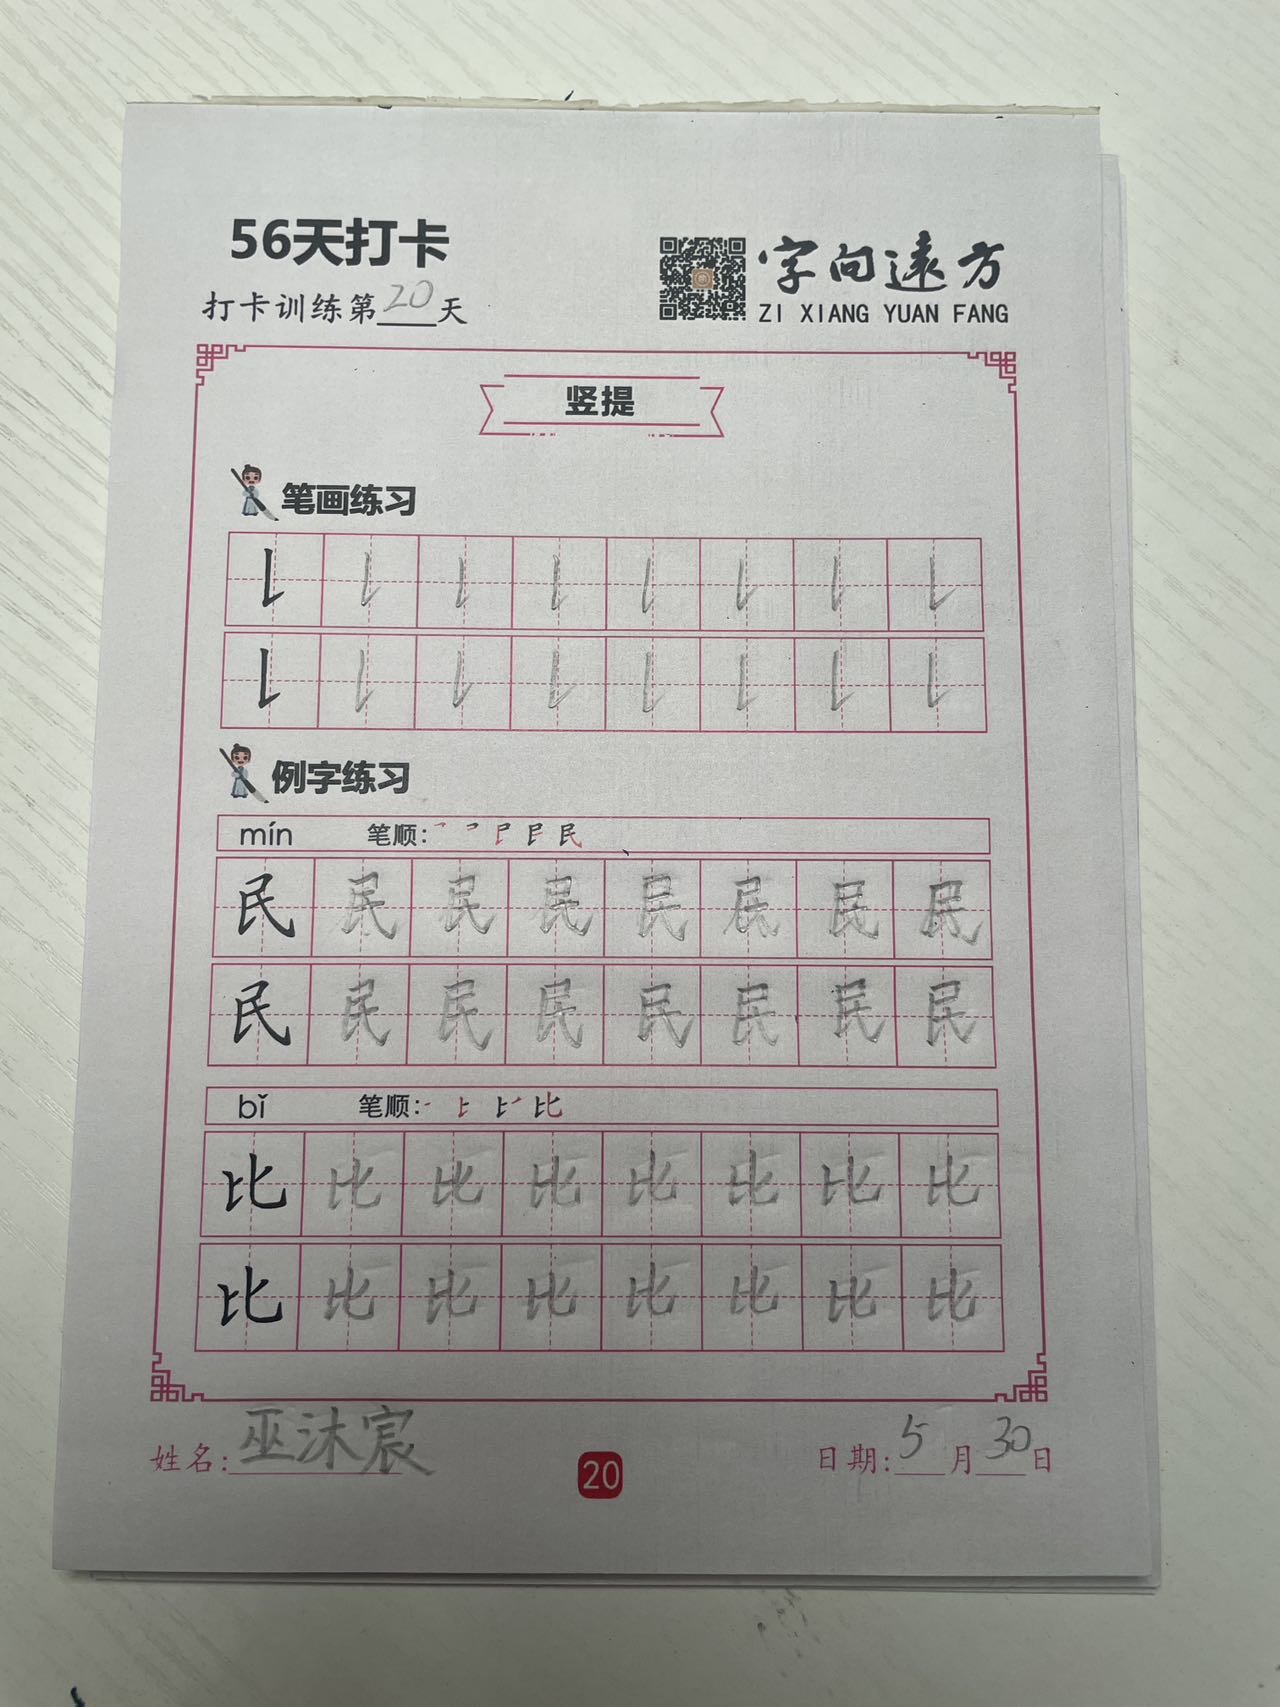 56天打卡
打卡训练第20天
字向远方
ZI XIANG YUAN FANG
竖提
笔画练习
例字练习
mín 笔顺：
民 民 民 民 民 民 民 民
民 民 民 民 民 民 民 民
bǐ 笔顺：
比 比 比 比 比 比 比 比
比 比 比 比 比 比 比 比
姓名：巫沐宸
20
日期：5月30日